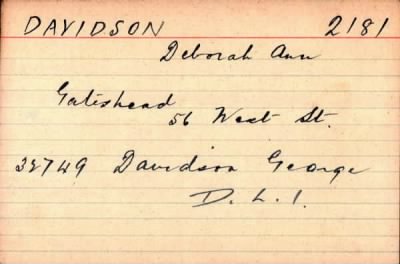 DAVIDSON 2181
Deborah Ann
Gateshead
56 West St.
32749 Davidson George
D. L. I.